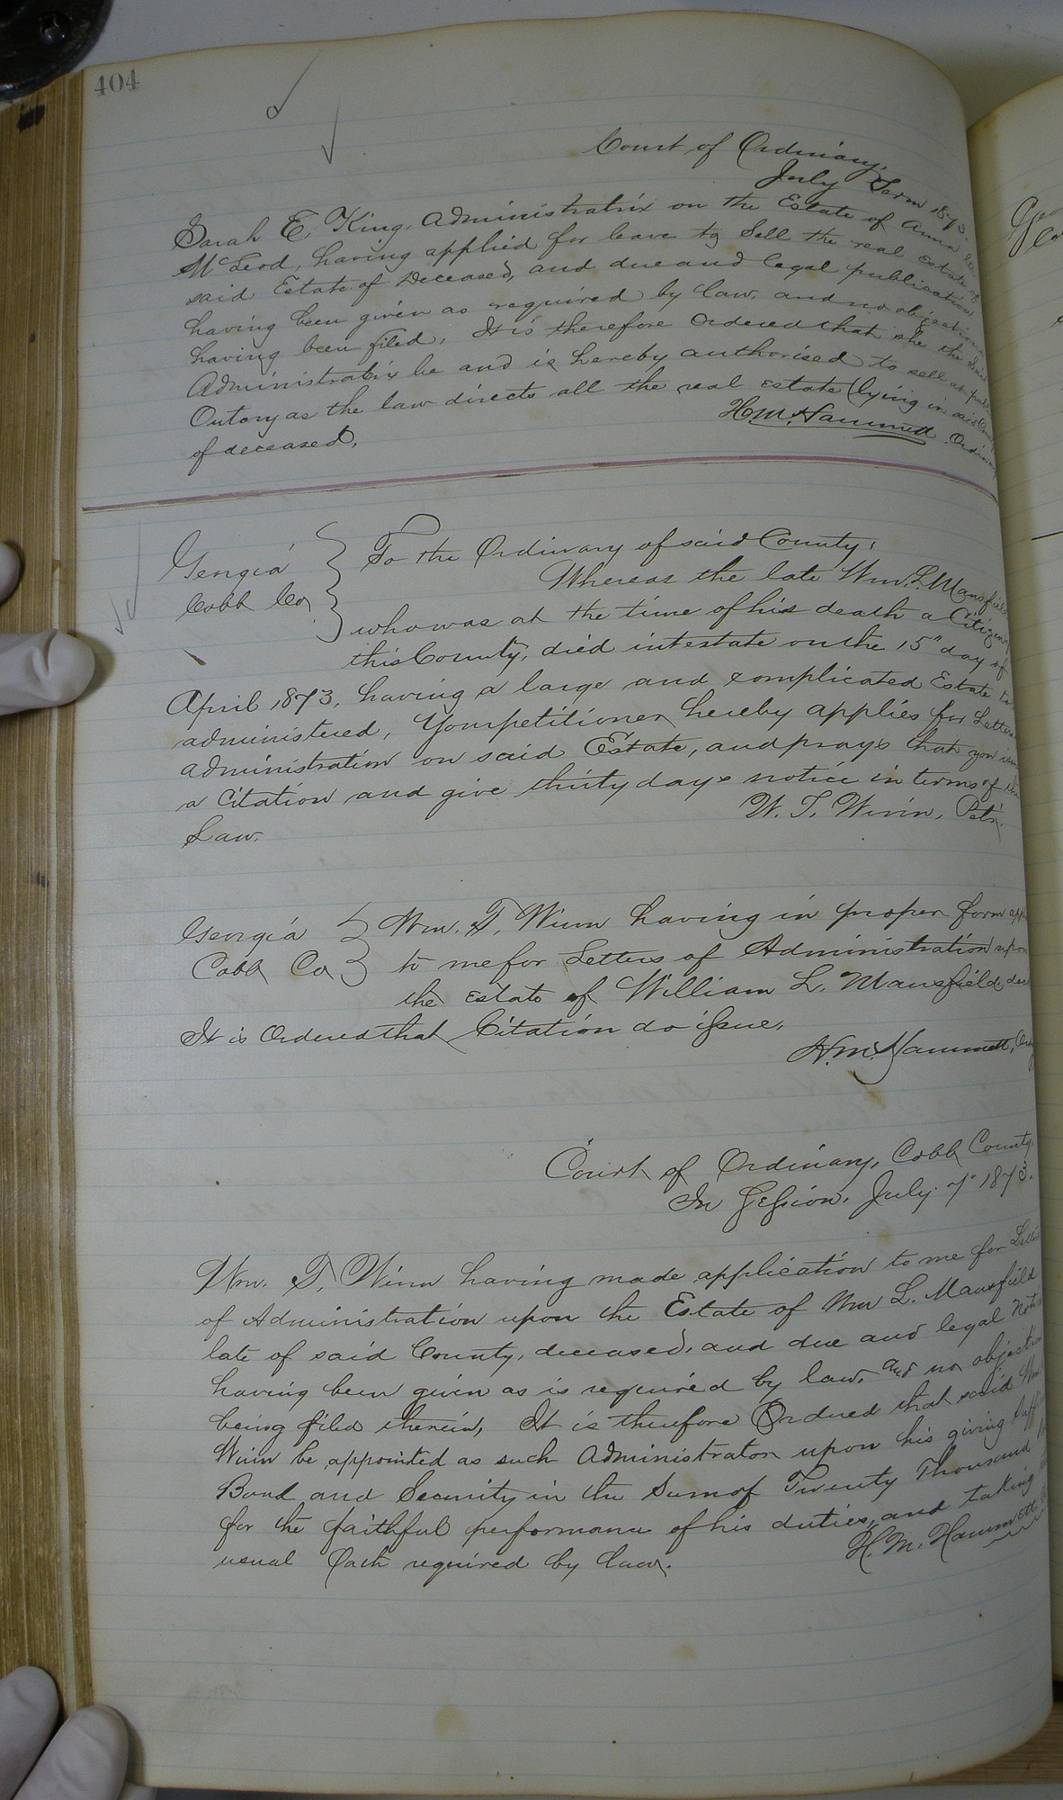 404
Court of Ordinary,
July Term 1873.
Sarah E. King, Administratrix on the Estate of Anna
McLeod, having applied for leave to Sell the real Estate of
said Estate of Deceased, and due and legal publication
having been given as required by law, and no objection
having been filed, It is therefore Ordered that she the said
Administratrix be and is hereby authorised to sell at public
Outcry as the law directs all the real estate lying in said
of deceased.
H.M. Hammett Ordinary
Georgia
Cobb Co
To the Ordinary of said County:
Whereas the late Wm. L. Mansfield
who was at the time of his death a Citizen
this County, died intestate on the 15" day of
April 1873, having a large and complicated Estate to
administered, Your petitioner hereby applies for Letters
administration on said Estate, and prays that you issue
a Citation and give thirty days notice in terms of the
Law.
W. T. Winn, Petr.
Georgia
Cobb Co
Wm. T. Winn having in proper form
to me for Letters of Administration upon
the Estate of William L. Mansfield, decd
It is Ordered that Citation do issue.
H.M. Hammett,
Court of Ordinary, Cobb County.
In Session, July 7" 1873.
Wm. T. Winn having made application to me for Letters
of Administration upon the Estate of Wm L. Mansfield
late of said County, deceased, and due and legal Notice
having been given as is required by law, and no objection
being filed therein, It is therefore Ordered that said Wm
Winn be appointed as such Administrator upon his giving
Bond and Security in the Sum of Twenty Thousand
for the faithful performance of his duties, and taking
usual Oath required by law.
H. M. Hammett